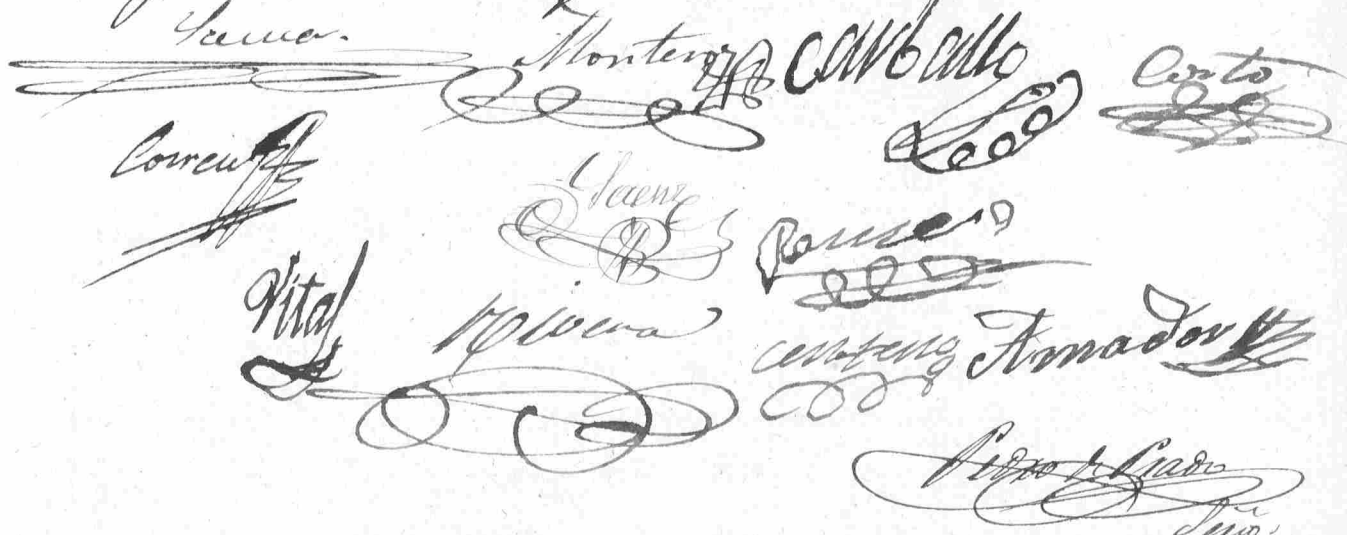 Montero Carballo Couto
Correa Saenz
Romero
Vital Rivera
Centeno Amador
Pedro de Prado
Srio.